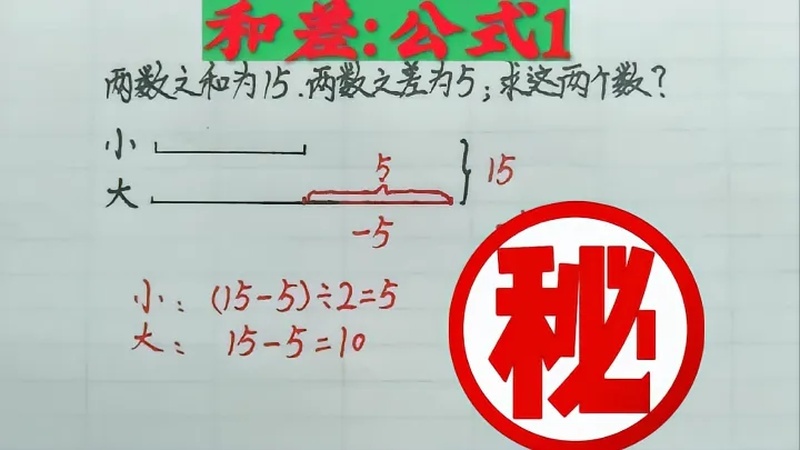 和差:公式1
两数之和为15.两数之差为5;求这两个数?
小
5
15
大
-5
小: (15-5)÷2=5
大: 15-5=10
秘